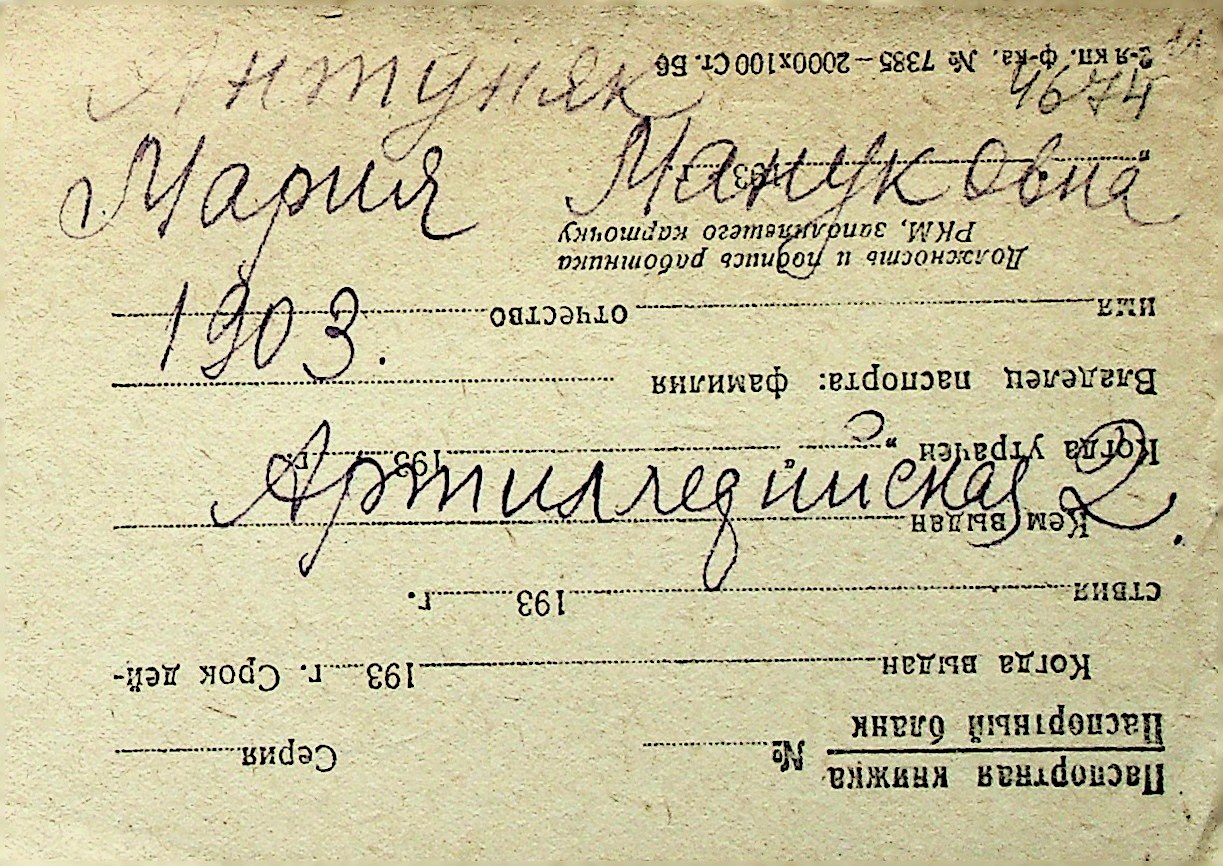 Антуняк
4674
Мария Мануковна
1903.
Артиллерийская 2.
Паспортная книжка
Паспортный бланк
№ Серия
Когда выдан 193 г. Срок дей-
ствия 193 г.
Кем выдан
Когда утрачен „ “ 193 г.
Владелец паспорта: фамилия
имя отчество
Должность и подпись работника
РКМ, заполнявшего карточку
„ “ 193 г.
2-я кп. ф-ка. № 7385—2000х100 Ст. Б6